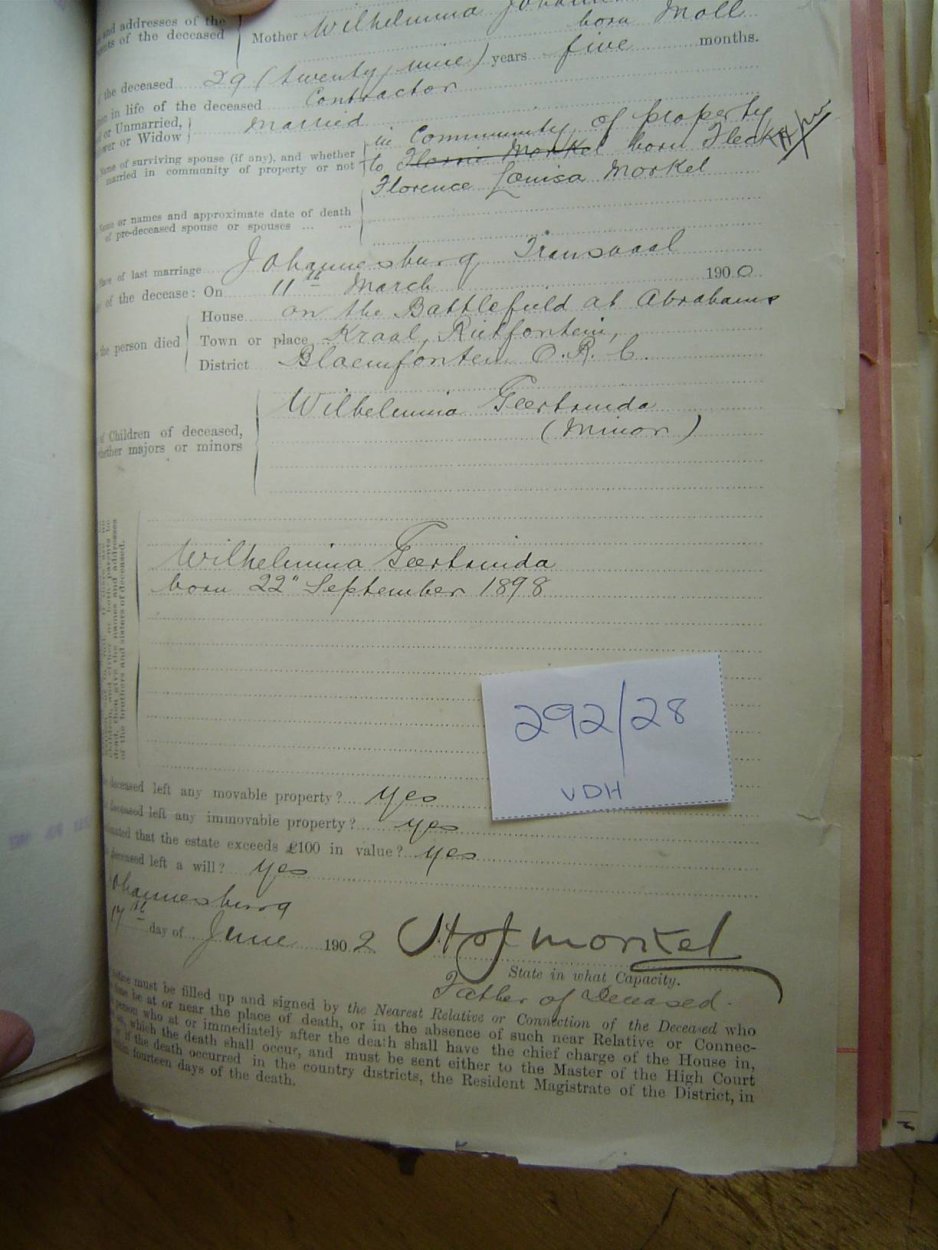 and addresses of the
parents of the deceased
Mother Wilhelmina
born Moll
the deceased 29 (twenty nine) years five months.
in life of the deceased Contractor
or Unmarried,
or Widow
Married
Name of surviving spouse (if any), and whether
married in community of property or not
in Community of property
to Morkel born
Florence Louisa Morkel
Name or names and approximate date of death
of pre-deceased spouse or spouses ... ...
Place of last marriage Johannesburg Transvaal
of the decease: On 11th March 1900
House on the Battlefield at Abrahams
the person died
Town or place Kraal, Rietfontein,
District Bloemfontein O.R.C.
Wilhelmina Geertruida
(Minor)
of Children of deceased,
whether majors or minors
dead, then give the names and addresses
of the brothers and sisters of deceased.
Wilhelmina Geertruida
born 22" September 1898
292/28
VDH
deceased left any movable property? yes
deceased left any immovable property? yes
estimated that the estate exceeds £100 in value? yes
deceased left a will? yes
Johannesburg
17th day of June 1902
Morkel
State in what Capacity.
Father of Deceased.
notice must be filled up and signed by the Nearest Relative or Connection of the Deceased who
be at or near the place of death, or in the absence of such near Relative or Connec-
person who at or immediately after the death shall have the chief charge of the House in,
on, which the death shall occur, and must be sent either to the Master of the High Court
if the death occurred in the country districts, the Resident Magistrate of the District, in
within fourteen days of the death.